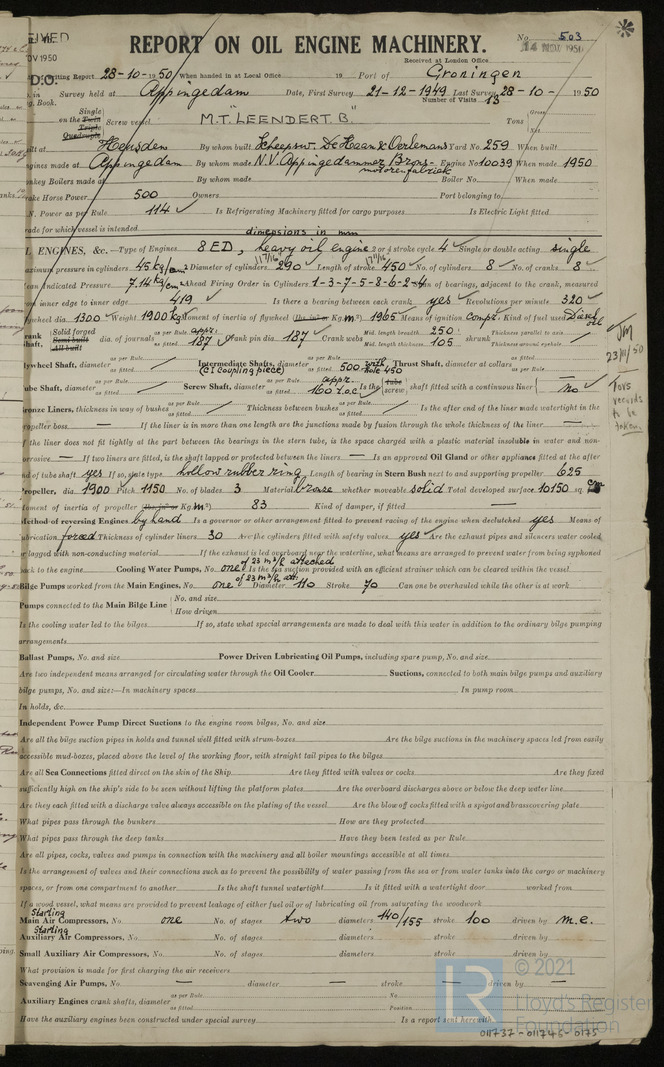 REPORT ON OIL ENGINE MACHINERY.
No. 503
14 NOV 1950
NOV 1950
D.O.
Received at London Office
Writing Report 28-10-1950 When handed in at Local Office 19 Port of Groningen
Survey held at Appingedam Date, First Survey 21-12-1949 Last Survey 28-10-1950
Book. Number of Visits 13
on the Single Twin Triple Quadruple Screw vessel M.T. "LEENDERT B." Tons Gross Net
built at Heusden By whom built Scheepsw. De Haan & Oerlemans Yard No. 259 When built
Engines made at Appingedam By whom made N.V. Appingedammer Brons- motorenfabriek Engine No. 10039 When made 1950
Donkey Boilers made at By whom made Boiler No. When made
Brake Horse Power 500 Owners Port belonging to
N. Power as per Rule 114 Is Refrigerating Machinery fitted for cargo purposes Is Electric Light fitted
Trade for which vessel is intended dimensions in mm
OIL ENGINES, &c.—Type of Engines 8 ED, heavy oil engine 2 or 4 stroke cycle 4 Single or double acting single
Maximum pressure in cylinders 45 kg/cm² Diameter of cylinders 290 Length of stroke 450 No. of cylinders 8 No. of cranks 8
Mean Indicated Pressure 7.14 kg/cm² Ahead Firing Order in Cylinders 1-3-7-5-8-6-2-4 of bearings, adjacent to the crank, measured
from inner edge to inner edge 419 Is there a bearing between each crank yes Revolutions per minute 320
Flywheel dia 1300 Weight 1900 kg Moment of inertia of flywheel Kg.m²) 1965 Means of ignition compr. Kind of fuel used Diesel oil
Crank Shaft, Solid forged Semi built All built dia. of journals as per Rule appr. as fitted 187 Crank pin dia. 187 Crank webs Mid. length breadth 250 Mid. length thickness 105 shrunk Thickness parallel to axis Thickness around eyehole
Flywheel Shaft, diameter as per Rule as fitted Intermediate Shafts, diameter (CI coupling piece) as per Rule as fitted 500 with hole 450 Thrust Shaft, diameter at collars as per Rule as fitted
Tube Shaft, diameter as per Rule as fitted Screw Shaft, diameter as per Rule appr. as fitted 160 t.o.c. Is the tube screw shaft fitted with a continuous liner no
Bronze Liners, thickness in way of bushes as per Rule as fitted Thickness between bushes as per Rule as fitted Is the after end of the liner made watertight in the
propeller boss — If the liner is in more than one length are the junctions made by fusion through the whole thickness of the liner —
If the liner does not fit tightly at the part between the bearings in the stern tube, is the space charged with a plastic material insoluble in water and non-
corrosive — If two liners are fitted, is the shaft lapped or protected between the liners — Is an approved Oil Gland or other appliance fitted at the after
end of tube shaft yes If so, state type hollow rubber ring Length of bearing in Stern Bush next to and supporting propeller 625
Propeller, dia 1900 Pitch 1150 No. of blades 3 Material bronse whether moveable solid Total developed surface 10150 sq. cm
Moment of inertia of propeller Kg.m²) 83 Kind of damper, if fitted —
Method of reversing Engines by hand Is a governor or other arrangement fitted to prevent racing of the engine when declutched yes Means of
lubrication forced Thickness of cylinder liners 30 Are the cylinders fitted with safety valves yes Are the exhaust pipes and silencers water cooled
or lagged with non-conducting material If the exhaust is led overboard near the waterline, what means are arranged to prevent water from being syphoned
back to the engine Cooling Water Pumps, No. one of 23 m³/h attached Is the sea suction provided with an efficient strainer which can be cleared within the vessel
Bilge Pumps worked from the Main Engines, No. one of 23 m³/h att. Diameter 110 Stroke 70 Can one be overhauled while the other is at work
Pumps connected to the Main Bilge Line No. and size How driven
Is the cooling water led to the bilges If so, state what special arrangements are made to deal with this water in addition to the ordinary bilge pumping
arrangements
Ballast Pumps, No. and size Power Driven Lubricating Oil Pumps, including spare pump, No. and size
Are two independent means arranged for circulating water through the Oil Cooler Suctions, connected to both main bilge pumps and auxiliary
bilge pumps, No. and size:—In machinery spaces In pump room
In holds, &c.
Independent Power Pump Direct Suctions to the engine room bilges, No. and size
Are all the bilge suction pipes in holds and tunnel well fitted with strum-boxes Are the bilge suctions in the machinery spaces led from easily
accessible mud-boxes, placed above the level of the working floor, with straight tail pipes to the bilges
Are all Sea Connections fitted direct on the skin of the Ship Are they fitted with valves or cocks Are they fixed
sufficiently high on the ship's side to be seen without lifting the platform plates Are the overboard discharges above or below the deep water line
Are they each fitted with a discharge valve always accessible on the plating of the vessel Are the blow off cocks fitted with a spigot and brass covering plate
What pipes pass through the bunkers How are they protected
What pipes pass through the deep tanks Have they been tested as per Rule
Are all pipes, cocks, valves and pumps in connection with the machinery and all boiler mountings accessible at all times
Is the arrangement of valves and their connections such as to prevent the possibility of water passing from the sea or from water tanks into the cargo or machinery
spaces, or from one compartment to another Is the shaft tunnel watertight Is it fitted with a watertight door worked from
If a wood vessel, what means are provided to prevent leakage of either fuel oil or of lubricating oil from saturating the woodwork
Starting
Main Air Compressors, No. one No. of stages two diameters 140/155 stroke 100 driven by m.e.
Starting
Auxiliary Air Compressors, No. No. of stages diameters stroke driven by
Small Auxiliary Air Compressors, No. No. of stages diameters stroke driven by
What provision is made for first charging the air receivers
Scavenging Air Pumps, No. — diameter — stroke — driven by —
Auxiliary Engines crank shafts, diameter as per Rule as fitted No. Position
Have the auxiliary engines been constructed under special survey Is a report sent herewith
JM
23/11/50
Tors
records
to be
taken.
© 2021
Lloyd's Register
Foundation
011737-011745-0175